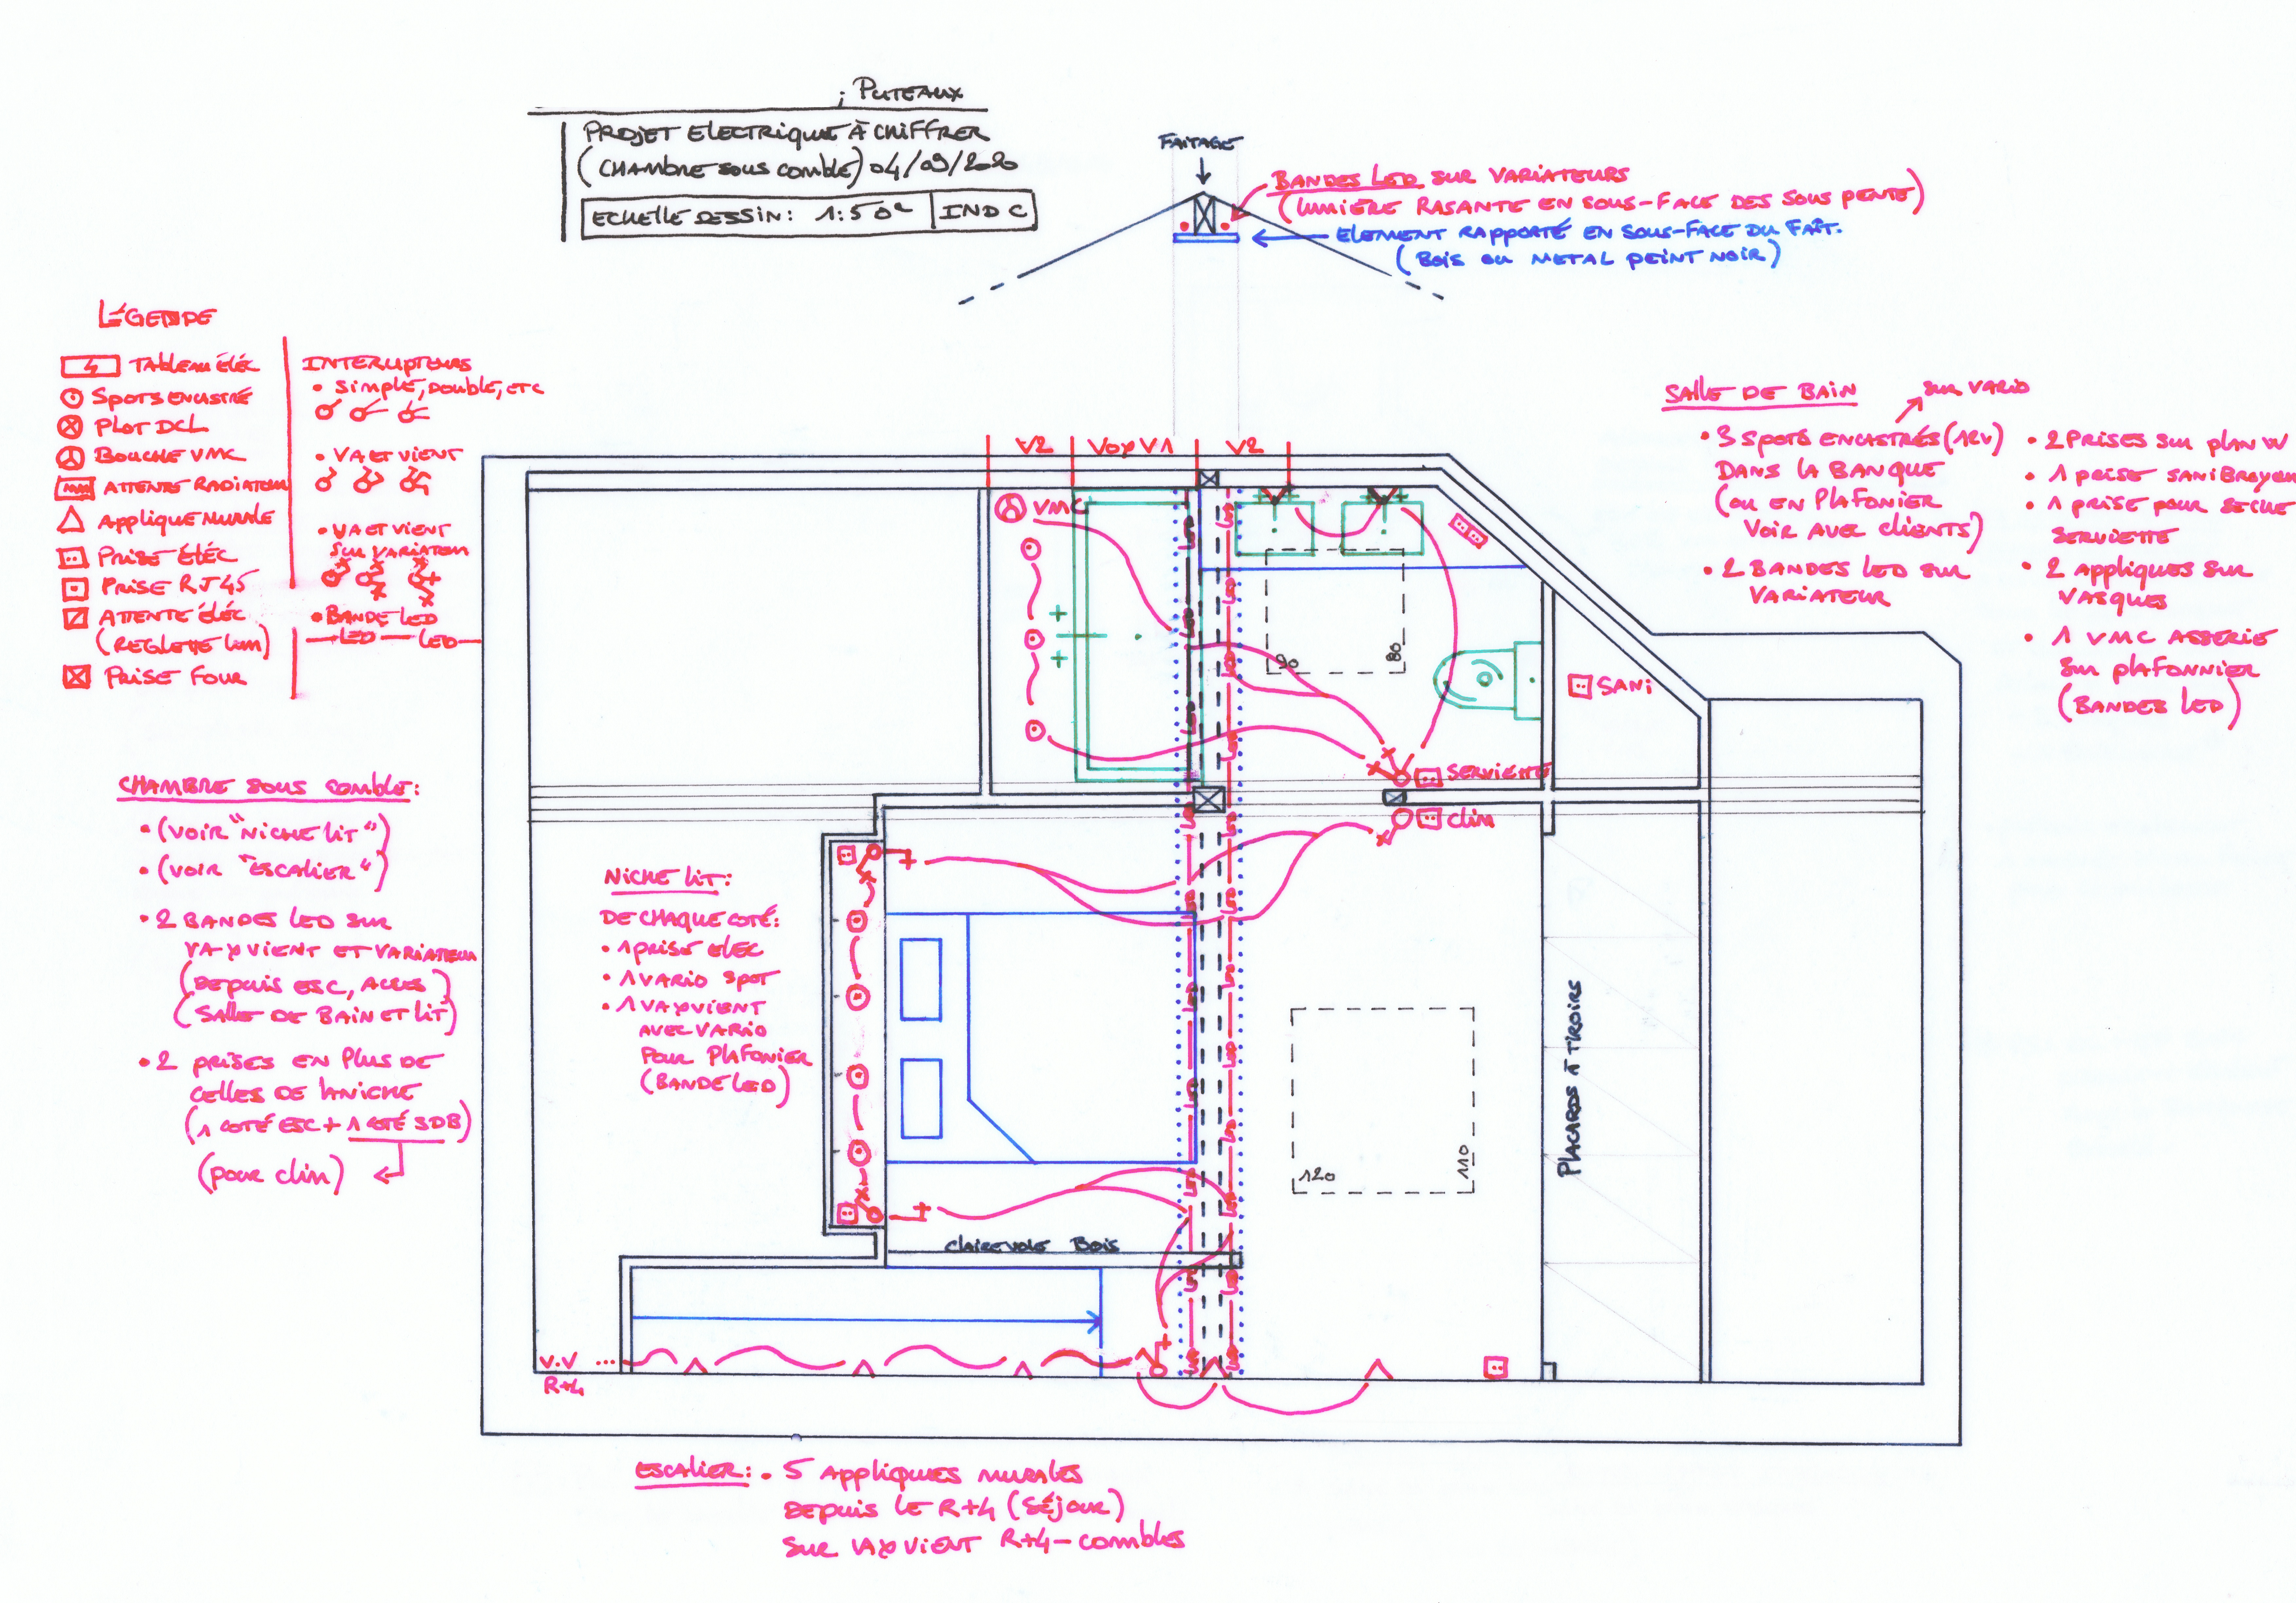 ; PUTEAUX
PROJET ELECTRIQUE À CHIFFRER
(CHAMBRE SOUS COMBLE) 04/09/2020
ECHELLE DESSIN: 1:50e
IND C
FAITAGE
BANDES LED SUR VARIATEURS
(LUMIÈRE RASANTE EN SOUS-FACE DES SOUS PENTE)
ELEMENT RAPPORTÉ EN SOUS-FACE DU FAÎT.
(BOIS OU METAL PEINT NOIR)
LÉGENDE
TABLEAU ÉLÉC
SPOTS ENCASTRÉ
PLOT DCL
BOUCHE VMC
ATTENTE RADIATEUR
APPLIQUE MURALE
PRISE ÉLÉC
PRISE RJ45
ATTENTE ÉLÉC
(REGLETTE LUM)
PRISE FOUR
INTERRUPTEURS
• SIMPLE, DOUBLE, ETC
• VA ET VIENT
• VA ET VIENT
SUR VARIATEUR
• BANDE LED
LED LED
SALLE DE BAIN
SUR VARIO
• 3 SPOTS ENCASTRÉS (12V)
DANS LA BANQUE
(OU EN PLAFONIER
VOIR AVEC CLIENTS)
• 2 BANDES LED SUR
VARIATEUR
• 2 PRISES SUR PLAN W
• 1 PRISE SANIBROYEU
• 1 PRISE POUR SECHE
SERVIETTE
• 2 APPLIQUES SUR
VASQUES
• 1 VMC ASSERIE
SUR PLAFONNIER
(BANDES LED)
V2
V1
V2
VMC
90
80
SANI
SERVIETTE
CLIM
CHAMBRE SOUS COMBLE:
• (VOIR "NICHE LIT")
• (VOIR "ESCALIER")
• 2 BANDES LED SUR
VA & VIENT ET VARIATEUR
(DEPUIS ESC, ACCES)
(SALLE DE BAIN ET LIT)
• 2 PRISES EN PLUS DE
CELLES DE NICHE
(1 COTÉ ESC + 1 COTÉ SDB)
(POUR CLIM)
NICHE LIT:
DE CHAQUE COTÉ:
• 1 PRISE ELEC
• 1 VARIO SPOT
• 1 VA & VIENT
AVEC VARIO
POUR PLAFONIER
(BANDE LED)
PLACARDS À TIROIRS
120
110
CLAIREVOIE BOIS
V.V ...
R+4
ESCALIER: • 5 APPLIQUES MURALES
DEPUIS LE R+4 (SÉJOUR)
SUR VA & VIENT R+4 - COMBLES